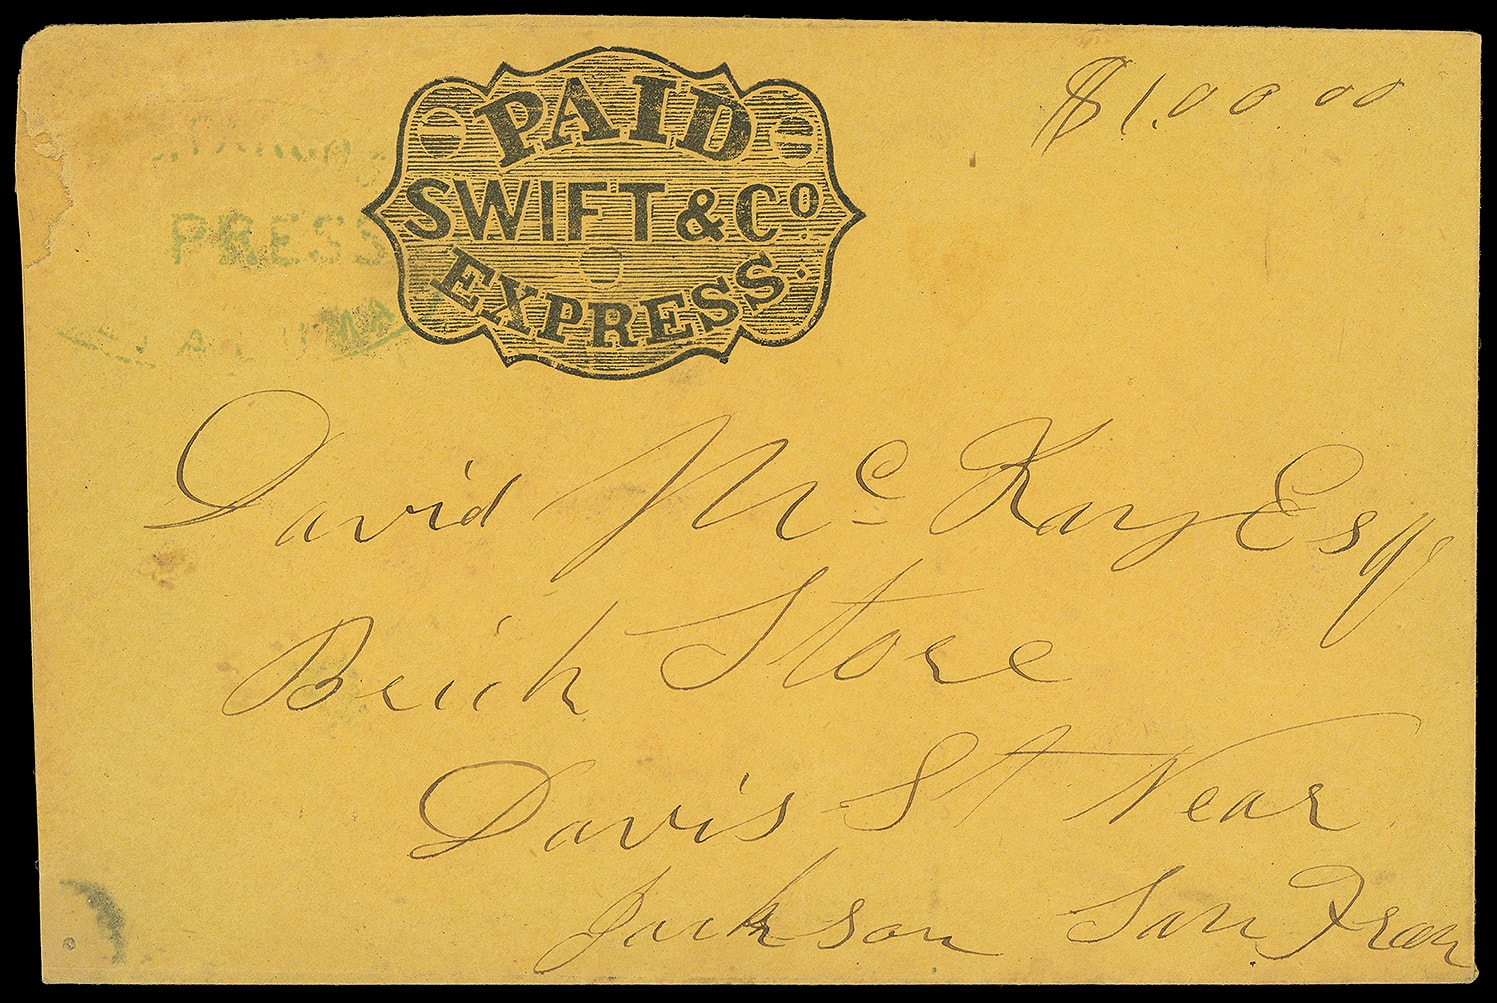 PAID
SWIFT & Co.
EXPRESS.
$1.00.00
PRESS
David Mc Kay Esq
Brick Store
Davis St Near
Jackson San Fran